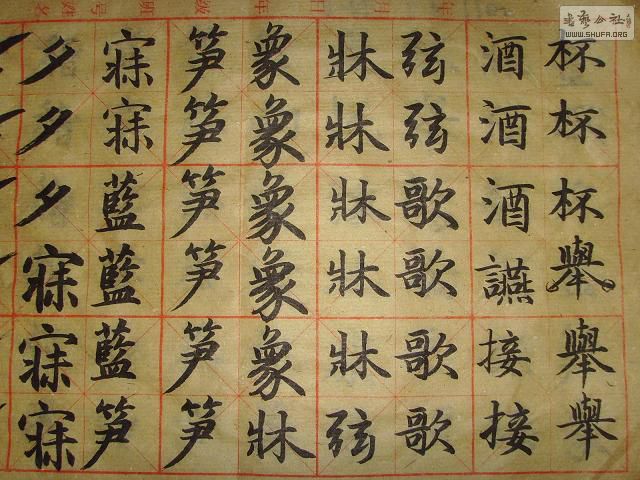 杯杯杯舉舉舉
酒酒酒讌接接
弦弦歌歌歌歌
牀牀牀牀牀弦
象象象象象牀
笋笋笋笋笋笋
寐寐藍藍藍笋
夕夕夕寐寐寐
书艺公社
WWW.SHUFA.ORG